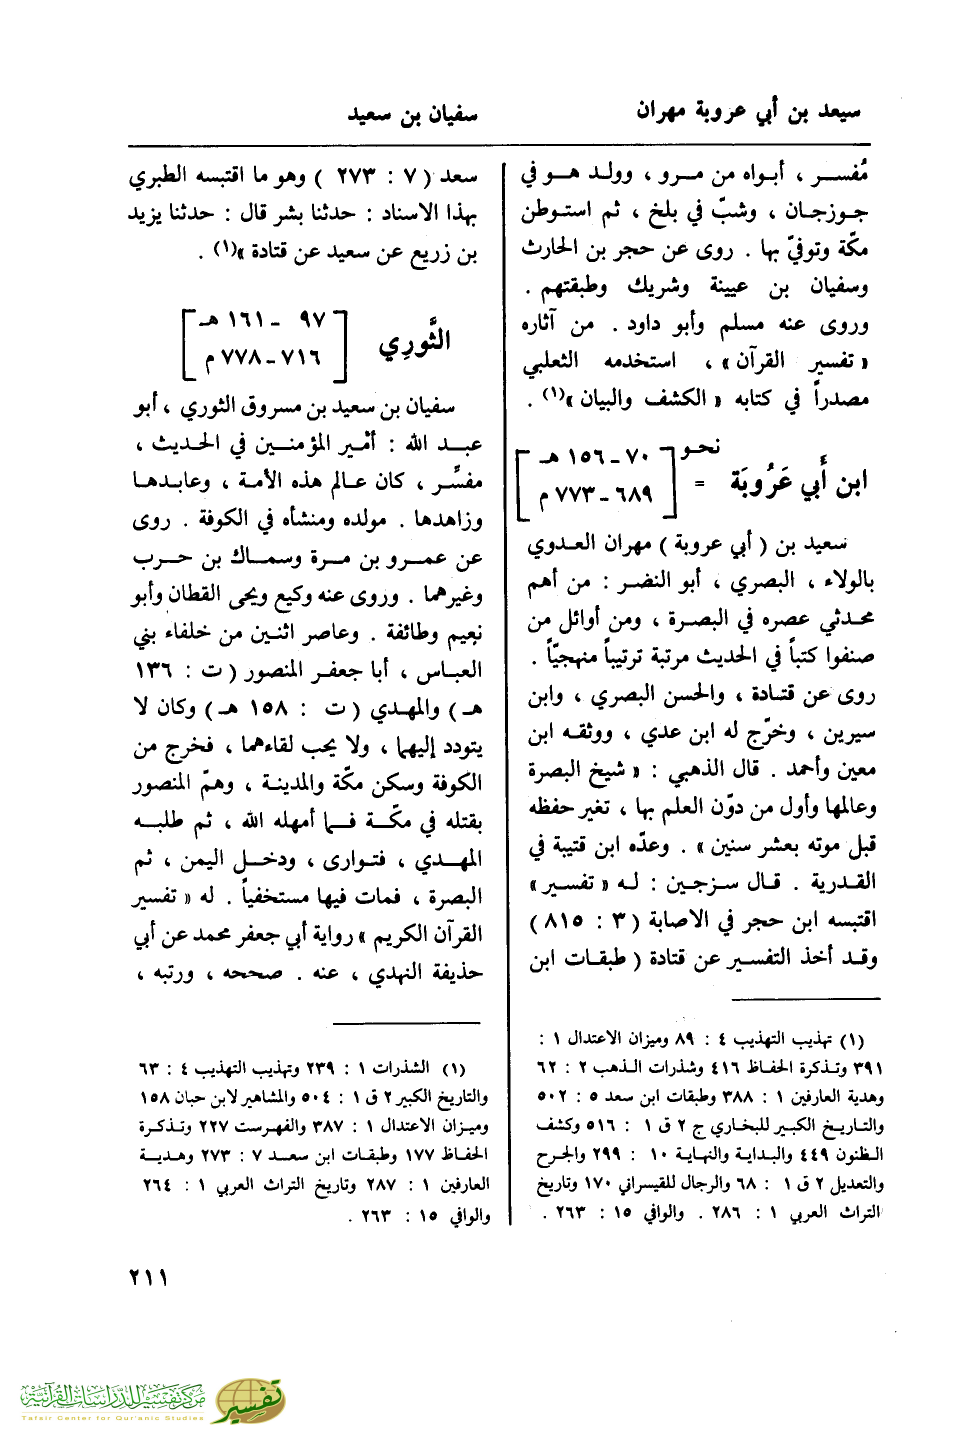 سيعد بن أبي عروبة مهران
سفيان بن سعيد
مُفسـر ، أبـواه من مـرو ، وولـد هـو في
جـوزجـان ، وشبّ في بلخ ، ثم استـوطن
مكّة وتوفيّ بها . روى عن حجر بن الحارث
وسفيان بن عيينة وشريك وطبقتهم .
وروى عنه مسلم وأبو داود . من آثاره
« تفسير القرآن » ، استخدمه الثعلبي
مصدراً في كتابه « الكشف والبيان »(١) .
ابن أبي عَرُوبَة = نحـو [ ٧٠ - ١٥٦ هـ
٦٨٩ - ٧٧٣ م ]
سعيد بن ( أبي عروبة ) مهران العـدوي
بالولاء ، البصري ، أبو النضر : من أهم
محـدثي عصره في البصـرة ، ومن أوائل من
صنفوا كتباً في الحديث مرتبة ترتيباً منهجيّاً .
روى عن قتـادة ، والحسن البصري ، وابن
سيرين ، وخرّج له ابن عدي ، ووثقـه ابن
معين وأحمد . قال الذهبي : « شيخ البصرة
وعالمها وأول من دوّن العلم بها ، تغير حفظه
قبل موته بعشر سنين » . وعدّه ابن قتيبة في
القـدرية . قـال سـزجـين : لـه « تفسير »
اقتبسه ابن حجر في الاصابة ( ٣ : ٨١٥ )
وقـد أخذ التفسير عن قتادة ( طبقـات ابن
(١) تهذيب التهذيب ٤ : ٨٩ وميزان الاعتدال ١ :
٣٩١ وتـذكرة الحفاظ ٤١٦ وشذرات الـذهب ٢ : ٦٢
وهدية العارفين ١ : ٣٨٨ وطبقات ابن سعد ٥ : ٥٠٢
والتـاريـخ الكبير للبخـاري ج ٢ ق ١ : ٥١٦ وكشف
الظنون ٤٤٩ والبـداية والنهـاية ١٠ : ٢٩٩ والجـرح
والتعديل ٢ ق ١ : ٦٨ والرجال للقيسراني ١٧٠ وتاريخ
التراث العربي ١ : ٢٨٦ . والوافي ١٥ : ٢٦٣ .
سعد ( ٧ : ٢٧٣ ) وهو ما اقتبسه الطبري
بهذا الاسناد : حدثنا بشر قال : حدثنا يزيد
بن زريع عن سعيد عن قتادة »(١) .
الثَّورِي [ ٩٧ - ١٦١ هـ
٧١٦ - ٧٧٨ م ]
سفيان بن سعيد بن مسروق الثوري ، أبو
عبـد الله : أمير المؤمنـين في الحديث ،
مفسِّر ، كان عـالم هذه الأمـة ، وعابـدهـا
وزاهدها . مولده ومنشأه في الكوفة . روى
عن عمـرو بن مـرة وسمـاك بن حـرب
وغيرهما . وروى عنه وكيع ويحى القطان وأبو
نعيم وطائفة . وعاصر اثنـين من خلفاء بني
العبـاس ، أبا جعفـر المنصور ( ت : ١٣٦
هـ ) والمهـدي ( ت : ١٥٨ هـ ) وكان لا
يتودد إليهما ، ولا يحب لقاءهما ، فخرج من
الكوفة وسكن مكّة والمدينـة ، وهمّ المنصور
بقتله في مكّـة فـما أمهله الله ، ثم طلبـه
المهـدي ، فتـوارى ، ودخـل اليمن ، ثم
البصرة ، فمات فيها مستخفياً . له « تفسير
القرآن الكريم » رواية أبي جعفر محمد عن أبي
حذيفة النهدي ، عنه . صححه ، ورتبه ،
(١) الشذرات ١ : ٢٣٩ وتهذيب التهذيب ٤ : ٦٣
والتاريخ الكبير ٢ ق ١ : ٥٠٤ والمشاهير لابن حبان ١٥٨
وميـزان الاعتدال ١ : ٣٨٧ والفهرست ٢٢٧ وتـذكـرة
الحفاظ ١٧٧ وطبقـات ابن سعـد ٧ : ٢٧٣ وهـديـة
العارفين ١ : ٢٨٧ وتاريخ التراث العربي ١ : ٢٦٤
والوافي ١٥ : ٢٦٣ .
٢١١
مركز تفسير للدراسات القرآنية
Tafsir Center for Qur'anic Studies
تفسير